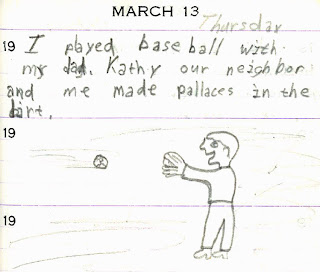 MARCH 13
Thursday
19 I played baseball with
my dad. Kathy our neighbor
and me made pallaces in the
dirt.
19
19